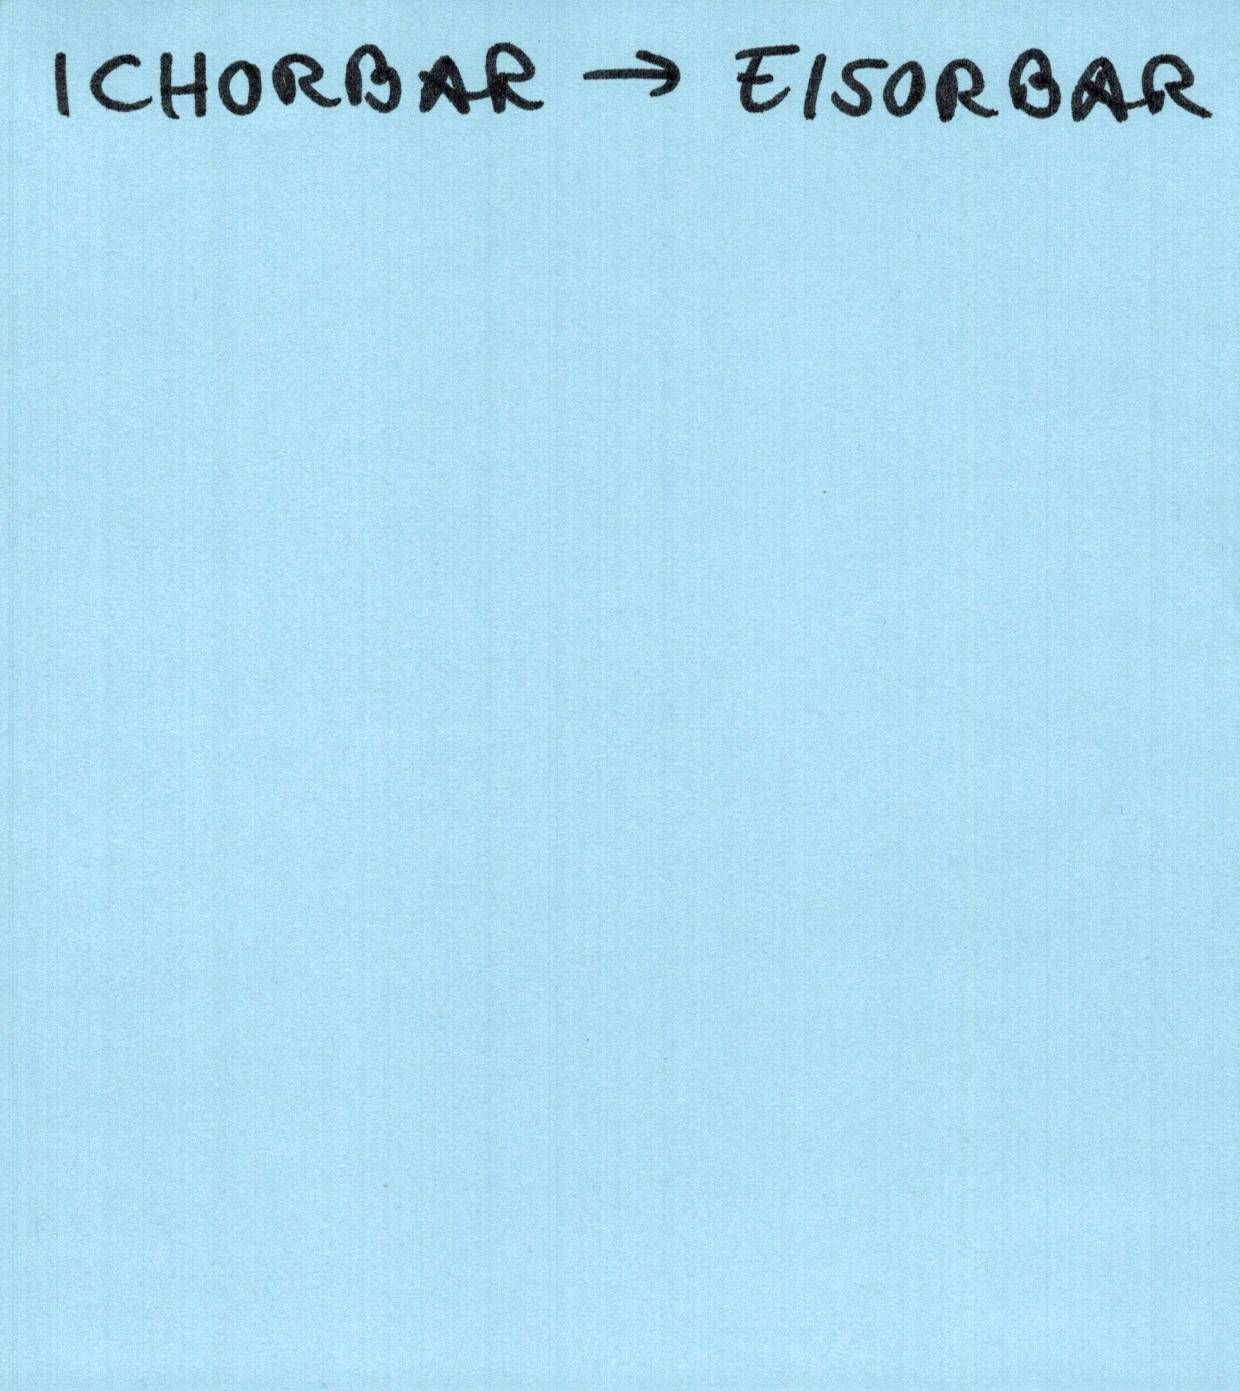 ICHORBAR → EISORBAR